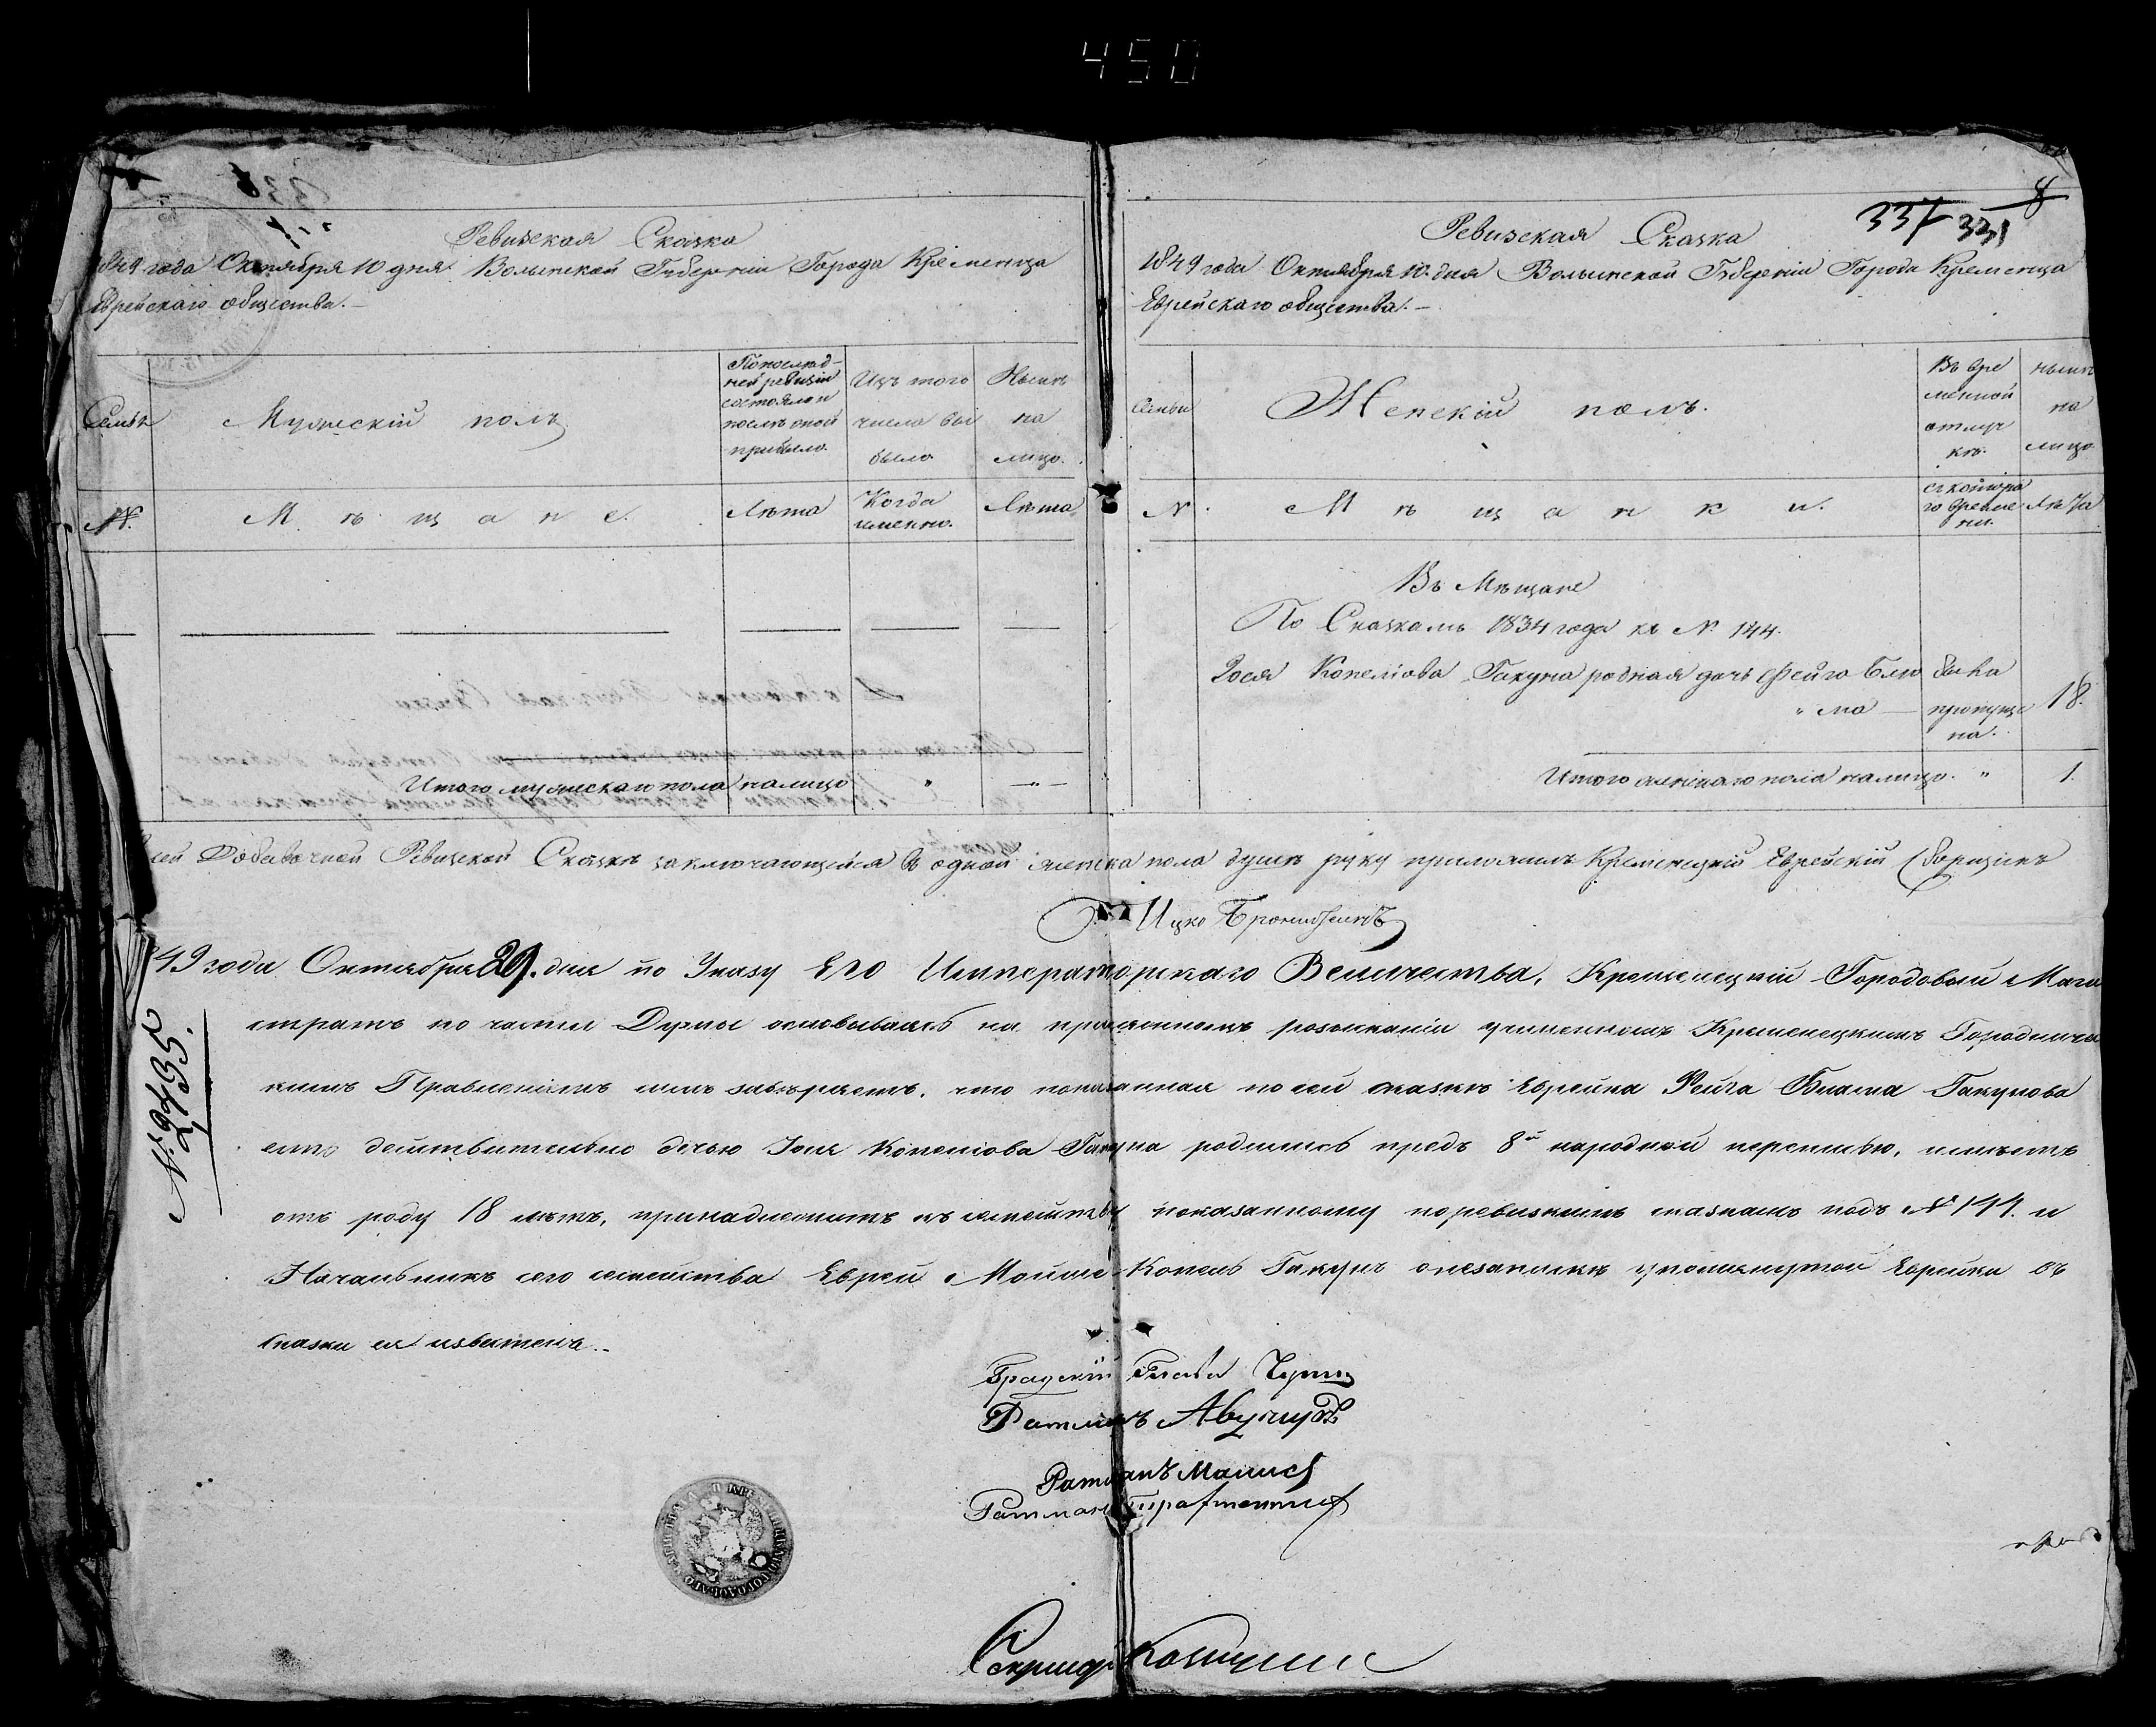 450
Ревизская Сказка
1849 года Октября 10 дня Волынской Губерніи Города Кременца
Еврейскаго общества.
Семьи
Мужескій полъ
По послѣд-
ней ревизіи
состояло и
послѣ оной
прибыло.
Изъ того
числа вы
было.
Нынѣ
на
лицо.
№.
Мѣщане.
Лѣта
Когда
именно.
Лѣта
Итого мужескаго пола налицо " — " —
337 331 8
Ревизская Сказка
1849 года Октября 10 дня Волынской Губерніи Города Кременца
Еврейскаго общества. —
Семьи
Женскій полъ.
Въ вре
менной
отлуч
кѣ.
нынѣ
на
лицо
№.
Мѣщанки.
съ котора
го време
ни.
Лѣта
Въ Мѣщане
По Сказкамъ 1834 года къ № 144.
Іося Копеліова Гакуна родная дочь Фейга Блю была
" ма — пропуще 18.
на.
Итого женскаго пола налицо. " 1.
сей Добавочной Ревизской Сказкѣ заключающейся въ одной женска пола душѣ руку приложилъ Кременецкій Еврейскій Сборщикъ
Ицко
49 года Октября 29. дня по Указу Его Императорскаго Величества, Кременецкій Городовый Маги
стратъ по части Думы основываясь на произведенномъ розысканіи учиненномъ Кременецкимъ Городниче
кимъ Правленіемъ симъ завѣряетъ, что показанная по сей сказкѣ Еврейка Фейга Блюма Гакунова
есть действительно дочью Іося Копеліова Гакуна родилась предъ 8й народной переписью, имѣетъ
отъ роду 18 лѣтъ, принадлежитъ къ семейству показанному по ревизскимъ сказкамъ подъ № 144. и
Начальникъ сего семейства Еврей Мойше Копель Гакунъ о незапискѣ упомянутой Еврейки въ
сказки ея
№. 2735.
Градскій Глава
Ратманъ
Ратманъ
Ратманъ
Секретарь